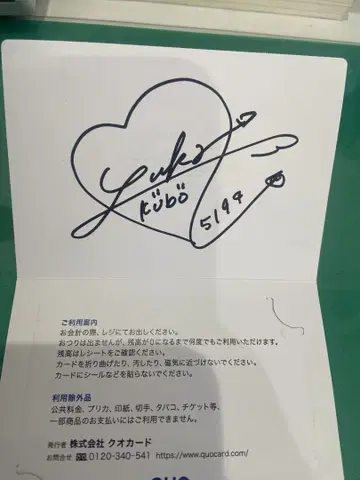 Yuko
Kübö
5194
ご利用案内
お会計の際、レジにてお出しください。
おつりは出ませんが、残高が0になるまで何度でもご利用いただけます。
残高はレシートをご確認ください。
カードを折り曲げたり、汚したり、磁気に近づけないでください。
カードにシールなどを貼らないでください。
利用除外品
公共料金、プリカ、印紙、切手、タバコ、チケット等、
一部商品のお支払いにはご利用できません。
発行者 株式会社 クオカード
お問合せ 0120-340-541 https://www.quocard.com/